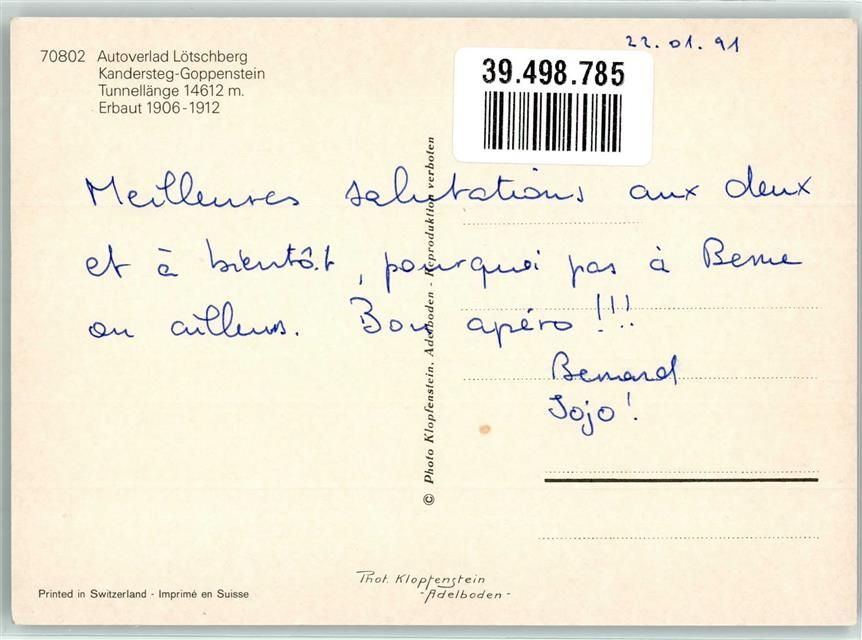 22.01.91
39.498.785
70802 Autoverlad Lötschberg
Kandersteg-Goppenstein
Tunnellänge 14612 m.
Erbaut 1906-1912
Meilleures salutations aux deux
et à bientôt, pourquoi pas à Berne
ou ailleurs. Bon apéro !!!
Bernard
Jojo!
© Photo Klopfenstein, Adelboden - Reproduktion verboten
Phot. Klopfenstein
-Adelboden-
Printed in Switzerland - Imprimé en Suisse